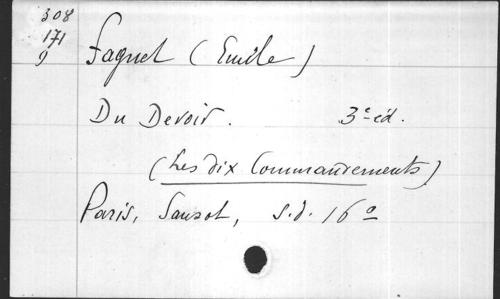 308
171
9
Faguet (Emile)
Du Devoir. 3e éd.
(Les dix Commandements)
Paris, Sansot, s.d. 16o